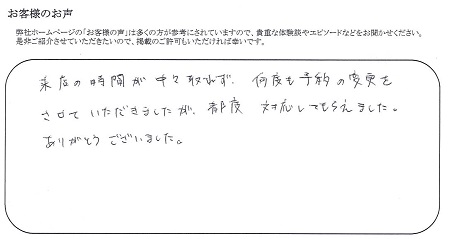 お客様のお声
弊社ホームページの「お客様の声」は多くの方が参考にされていますので、貴重な体験談やエピソードなどをお聞かせください。
是非ご紹介させていただきたいので、掲載のご許可もいただければ幸いです。
来店の時間が中々取れず、何度も予約の変更を
させていただきましたが、都度 対応してもらえました。
ありがとうございました。